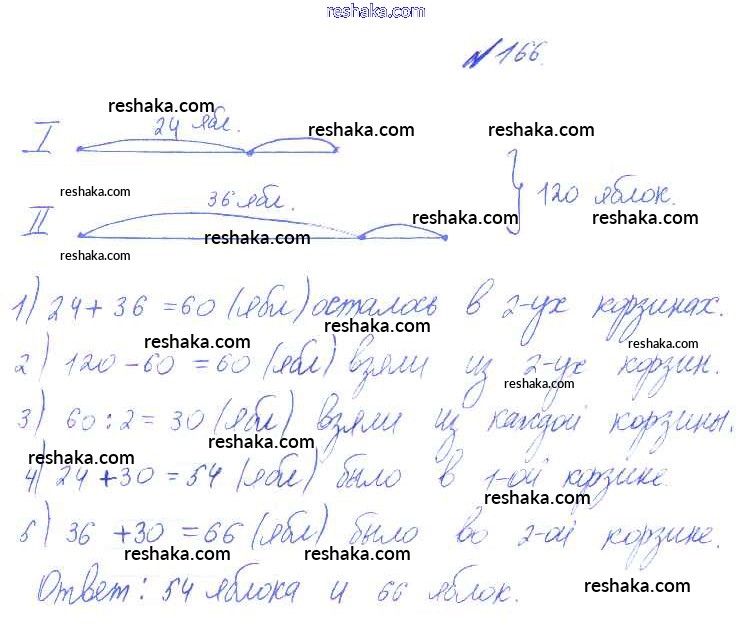 reshaka.com
№166.
reshaka.com
I 24 ябл. reshaka.com reshaka.com
reshaka.com
II 36 ябл. reshaka.com reshaka.com } 120 яблок. reshaka.com
reshaka.com
1) 24 + 36 = 60 (ябл) осталось в 2-ух корзинах.
reshaka.com reshaka.com
2) 120 - 60 = 60 (ябл) взяли из 2-ух корзин.
reshaka.com
3) 60 : 2 = 30 (ябл) взяли из каждой корзины.
reshaka.com reshaka.com
reshaka.com
4) 24 + 30 = 54 (ябл) было в 1-ой корзине.
reshaka.com
5) 36 + 30 = 66 (ябл) было во 2-ой корзине.
reshaka.com reshaka.com
Ответ: 54 яблока и 66 яблок. reshaka.com